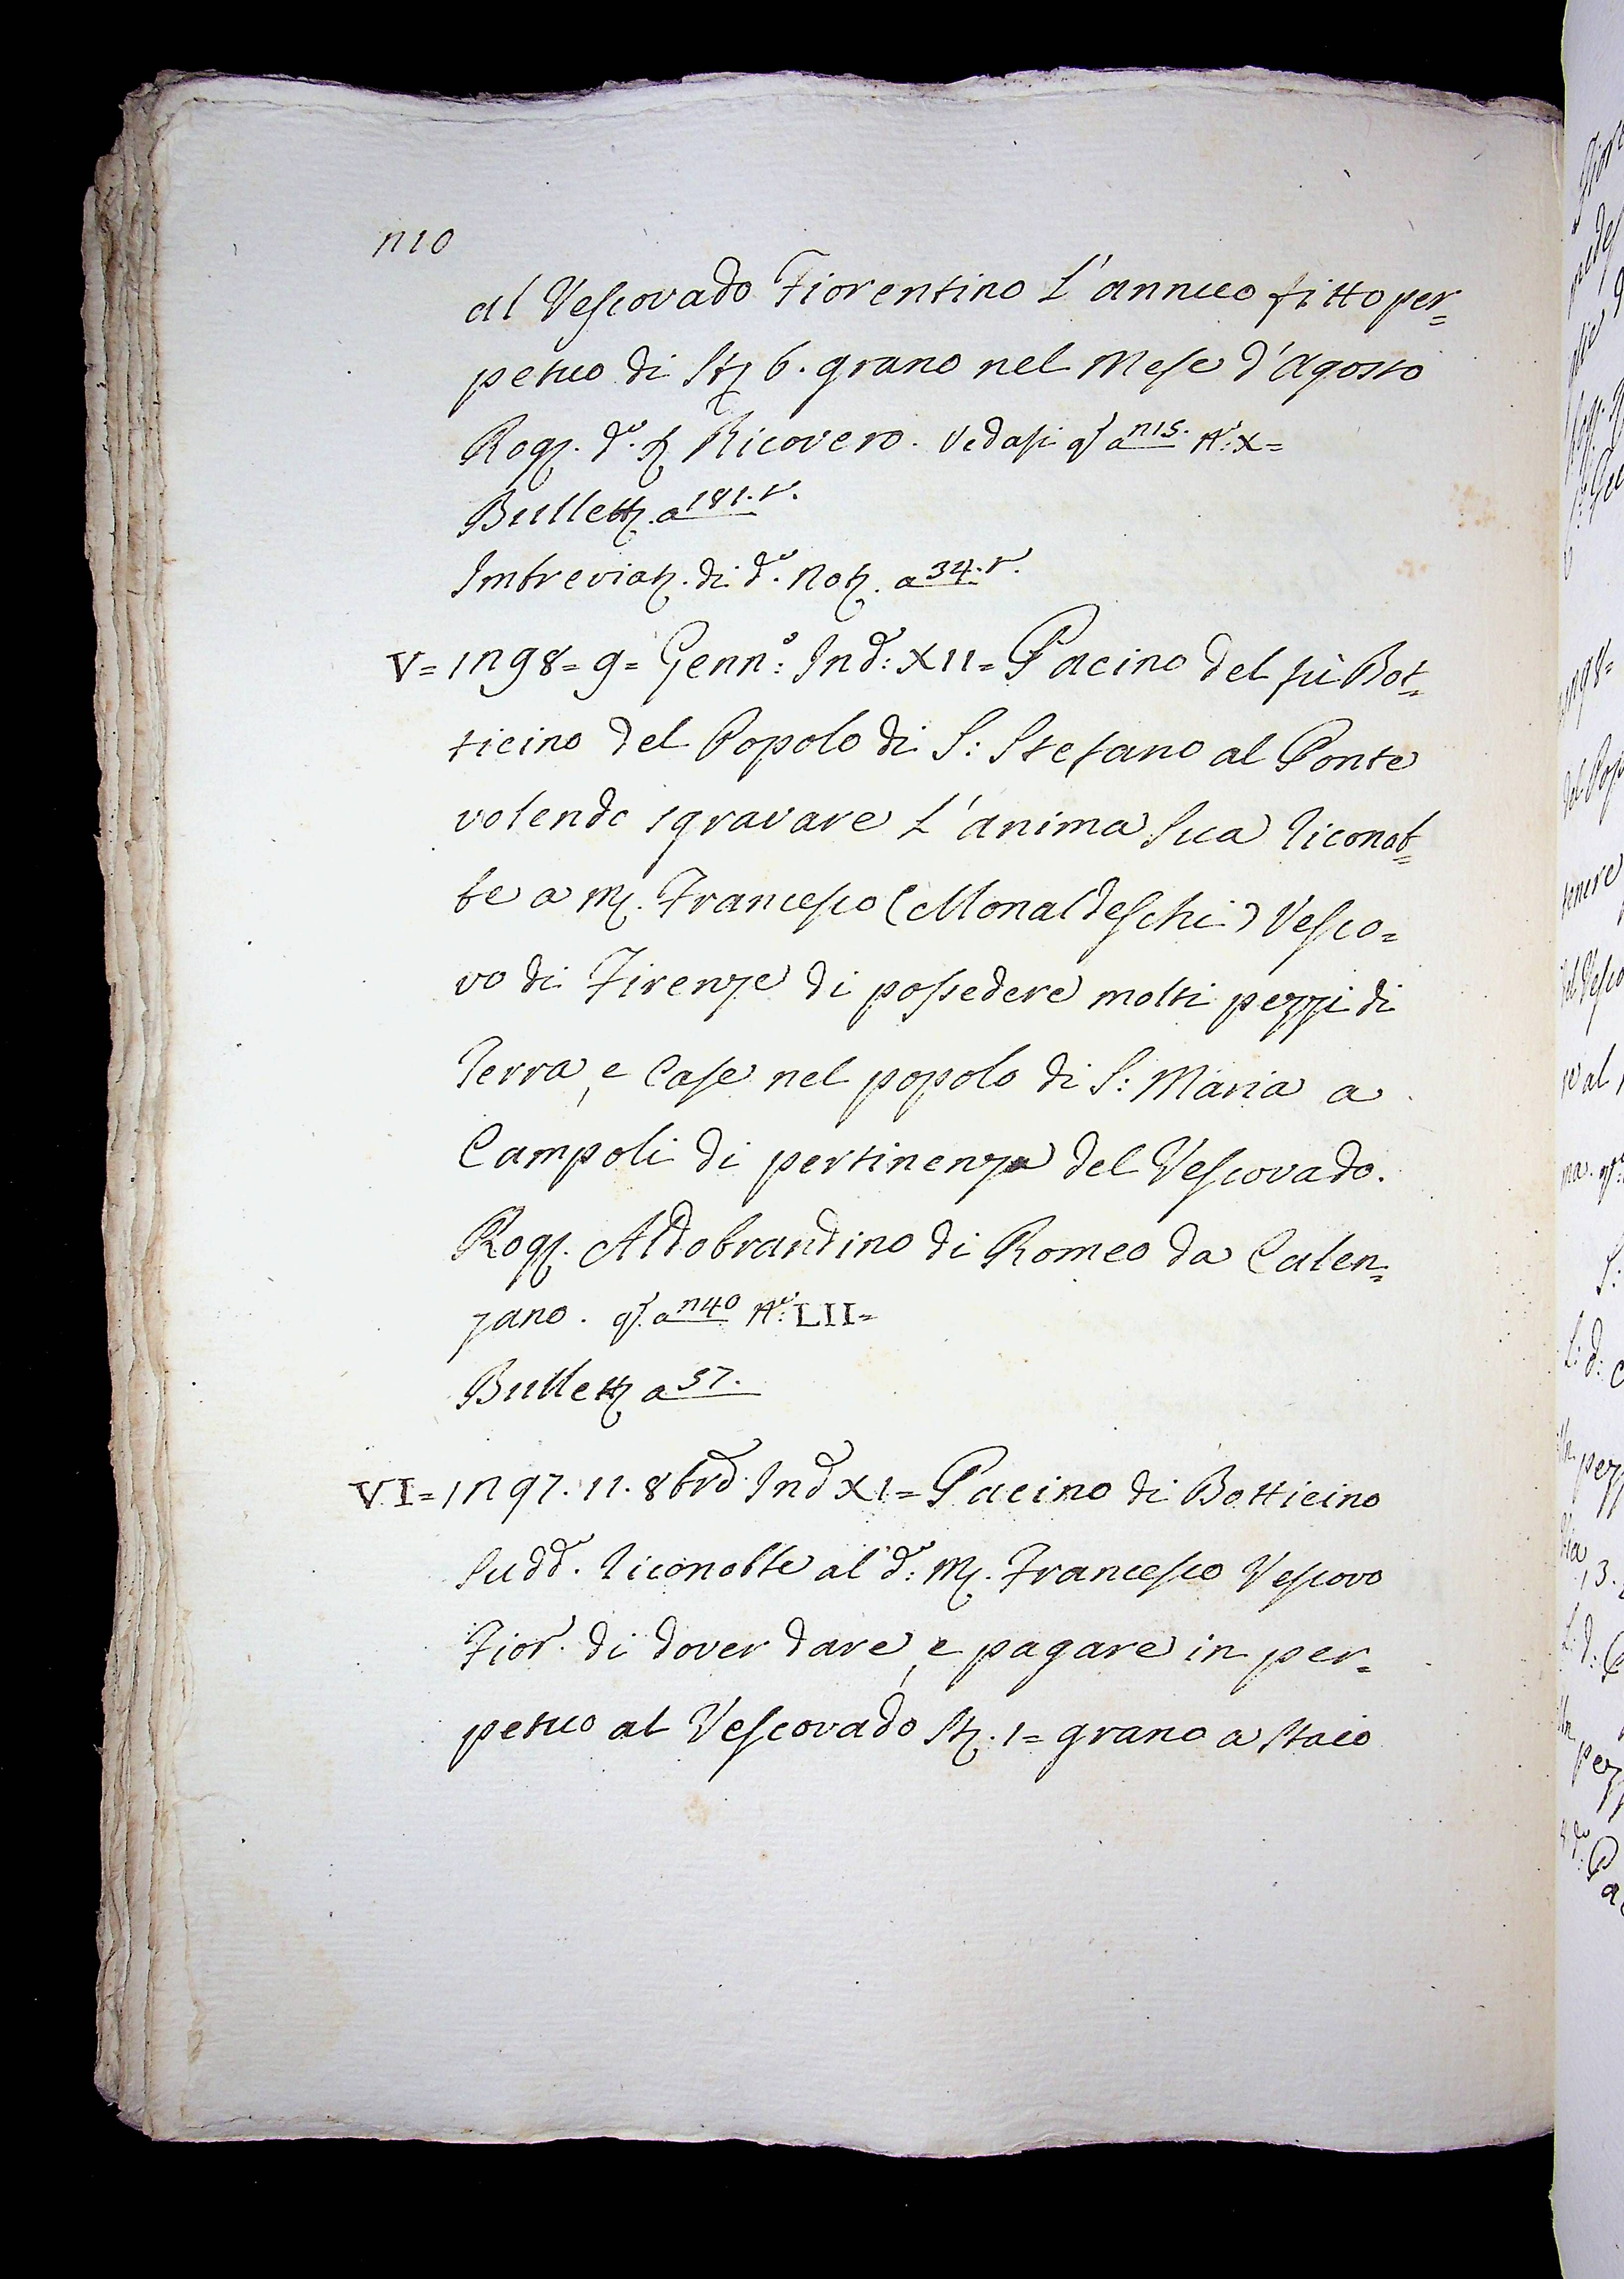 210
al Vescovado Fiorentino L'annuo fitto per=
petuo di Sta 6. grano nel Mese d'Agosto
Rog. do. Ricovero. Vedasi qs a 215. No: X=
Bullett. a 181. t.
Imbreviat. di do. Not. a 34. t.
V= 1298= 9= Gennо: Ind: XII= Pacino del fù Bot=
ticino del Popolo di S: Stefano al Ponte
volendo sgravare L'anima Sua riconob=
be a M. Francesco (Monaldeschi) Vesco=
vo di Firenze di possedere molti pezzi di
Terra, e Case nel popolo di S: Maria a
Campoli di pertinenza del Vescovado.
Rog. Aldobrandino di Romeo da Calen=
zano. qs a 240 No: LII=
Bullett a 57.
VI= 1297. 11. 8bre Ind XI= Pacino di Botticino
Sudd. riconobbe al do: M. Francesco Vescovo
Fior. di dover dare, e pagare in per=
petuo al Vescovado St. 1= grano a Staio